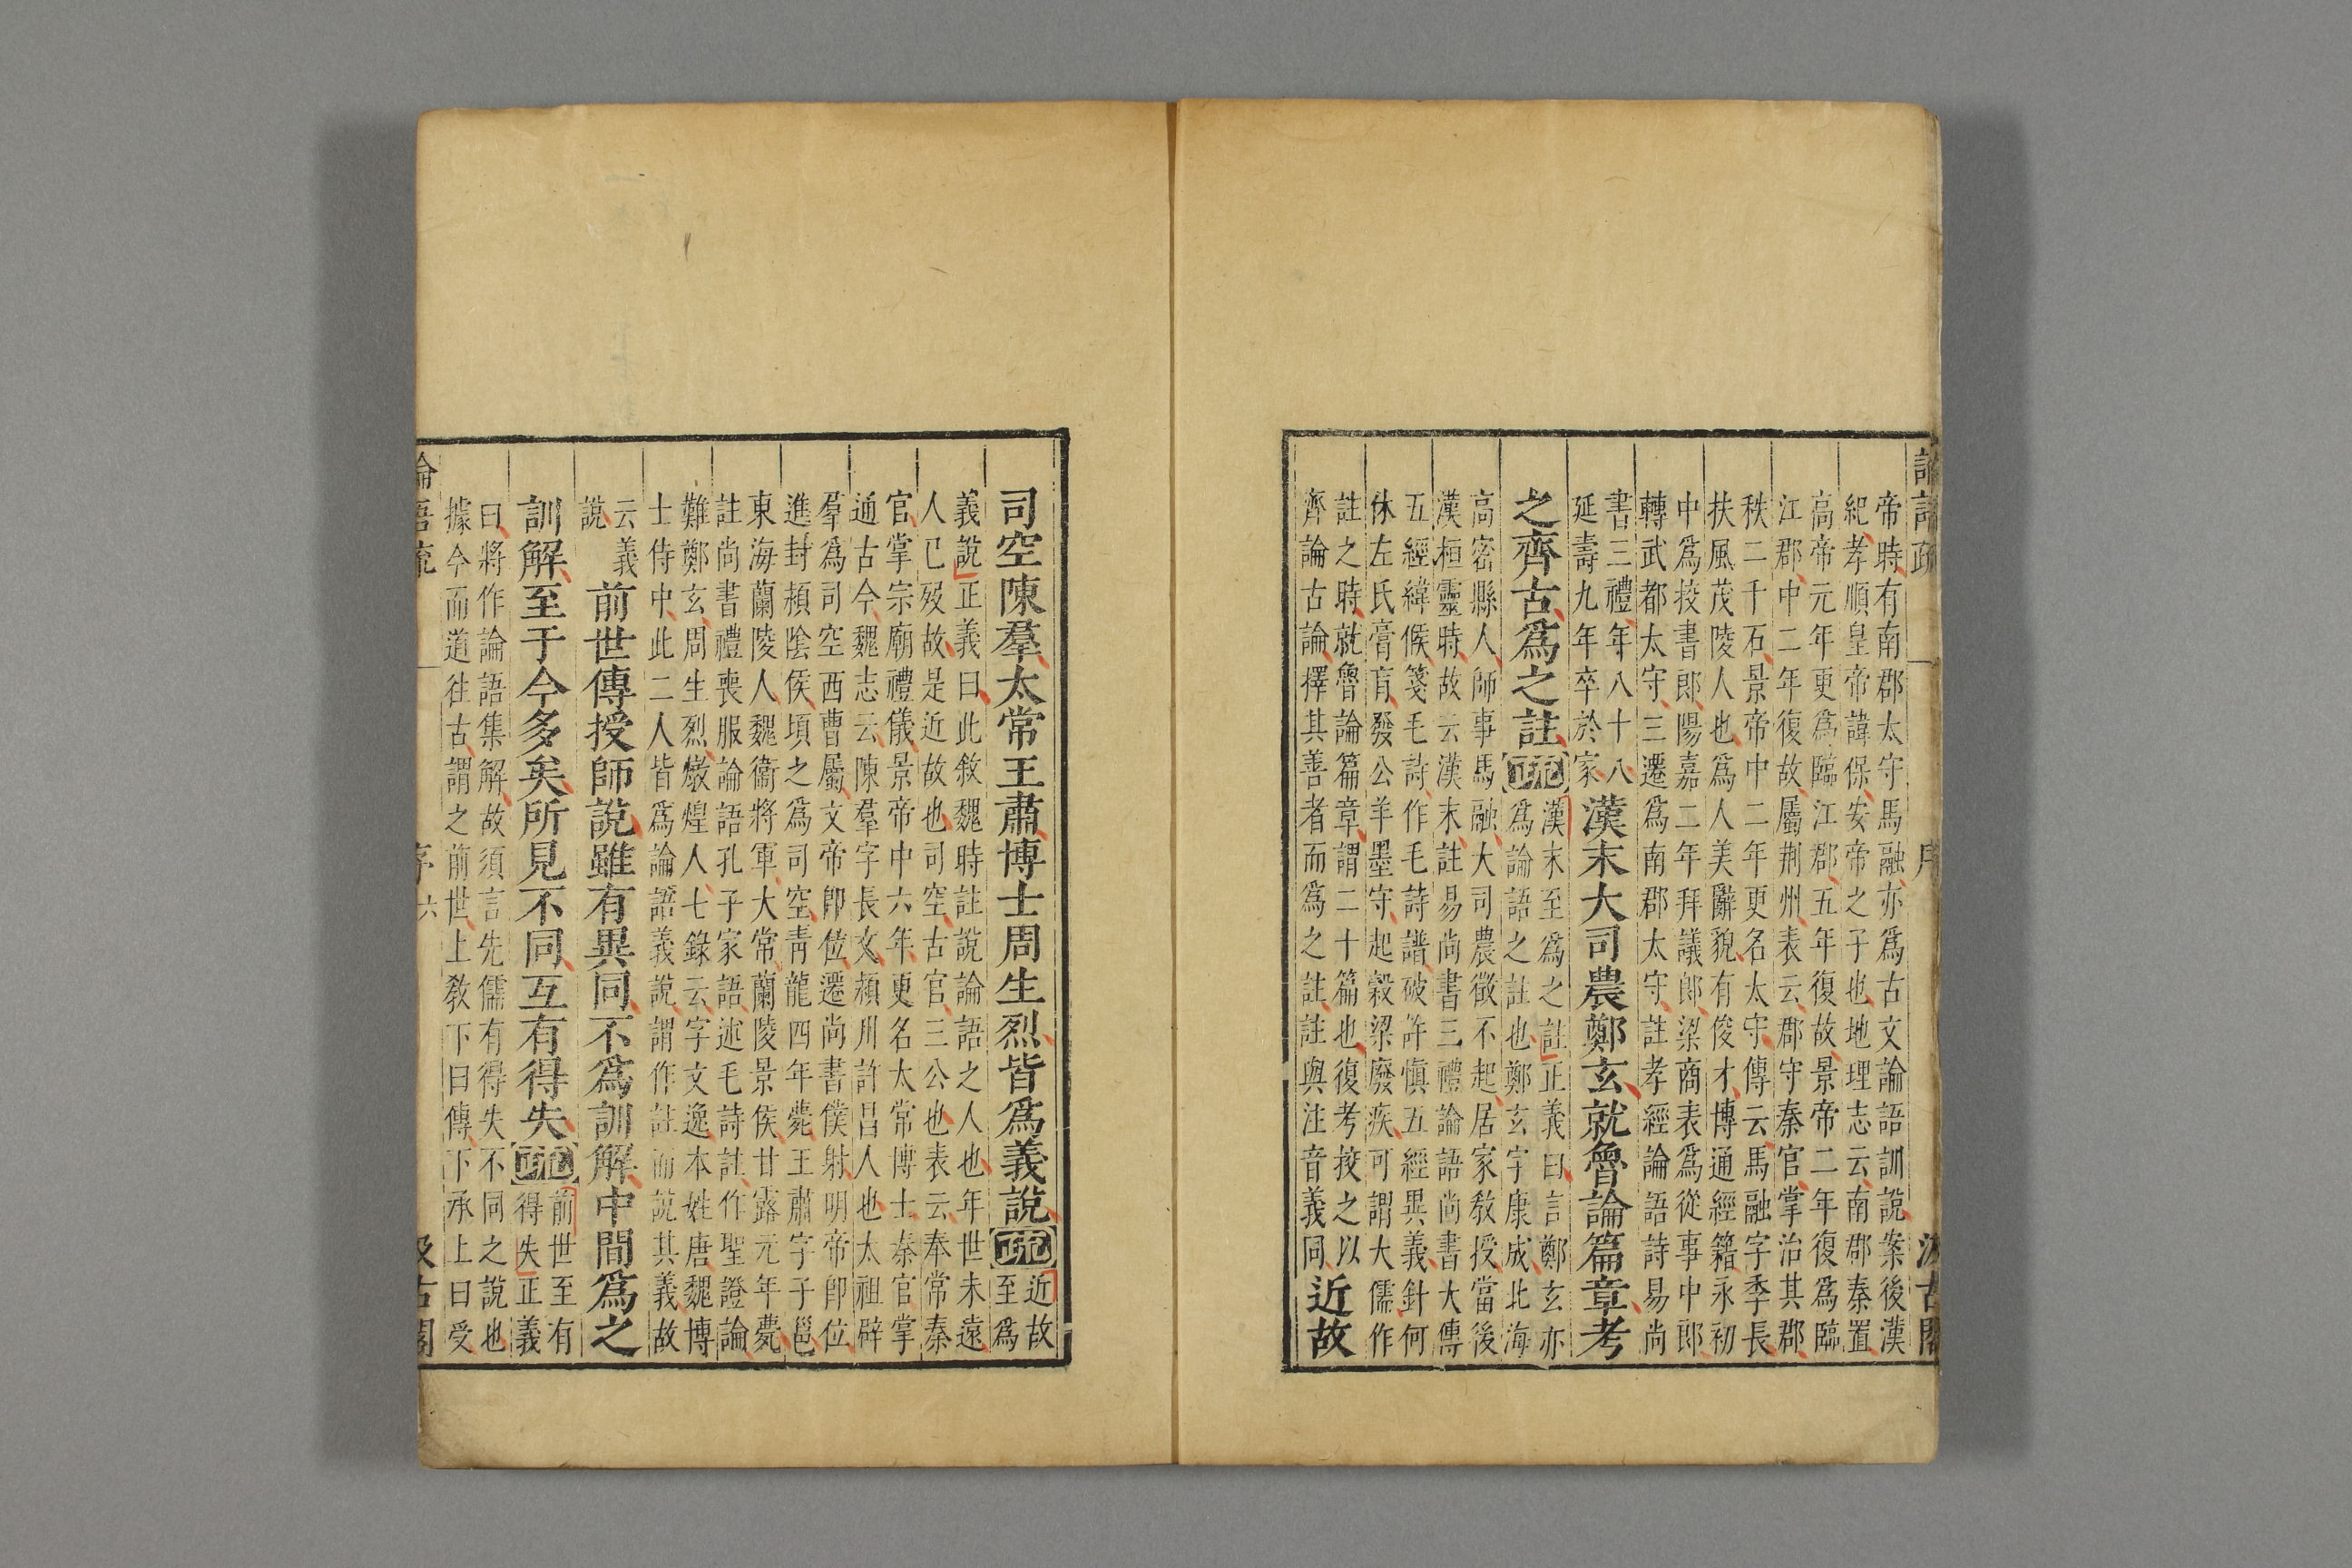 論語疏 一 序 汲古閣
帝時有南郡太守馬融亦爲古文論語訓說案後漢
紀孝順皇帝諱保安帝之子也地理志云南郡秦置
高帝元年更爲臨江郡五年復故景帝二年復爲臨
江郡中二年復故屬荆州表云郡守秦官掌治其郡
秩二千石景帝中二年更名太守傳云馬融字季長
扶風茂陵人也爲人美辭貌有俊才博通經籍永初
中爲挍書郎陽嘉二年拜議郎梁商表爲從事中郎
轉武都太守三遷爲南郡太守註孝經論語詩易尚
書三禮年八十八
延壽九年卒於家
漢末大司農鄭玄就魯論篇章考
之齊古爲之註疏
漢末至爲之註正義曰言鄭玄亦
爲論語之註也鄭玄字康成北海
高密縣人師事馬融大司農徵不起居家敎授當後
漢桓靈時故云漢末註易尚書三禮論語尚書大傳
五經緯候箋毛詩作毛詩譜破許慎五經異義針何
休左氏膏肓發公羊墨守起榖梁廢疾可謂大儒作
註之時就魯論篇章謂二十篇也復考挍之以
齊論古論擇其善者而爲之註註與注音義同
近故
司空陳羣太常王肅博士周生烈皆爲義說疏
近故
至爲
義說正義曰此敘魏時註說論語之人也年世未遠
人已歿故是近故也司空古官三公也表云奉常秦
官掌宗廟禮儀景帝中六年更名太常博士秦官掌
通古今魏志云陳羣字長文潁川許昌人也太祖辟
羣爲司空西曹屬文帝卽位遷尚書僕射明帝卽位
進封潁隂侯頃之爲司空靑龍四年薨王肅字子邕
東海蘭陵人魏衞將軍大常蘭陵景侯甘露元年薨
註尚書禮喪服論語孔子家語述毛詩註作聖證論
難鄭玄周生烈燉煌人七錄云字文逸本姓唐魏博
士侍中此二人皆爲論語義說謂作註而說其義故
云義
說
前世傳授師說雖有異同不爲訓解中間爲之
訓解至于今多矣所見不同互有得失疏
前世至有
得失正義
曰將作論語集解故須言先儒有得失不同之說也
據今而道往古謂之前世上敎下曰傳下承上曰受
論語疏 一 序 六 汲古閣